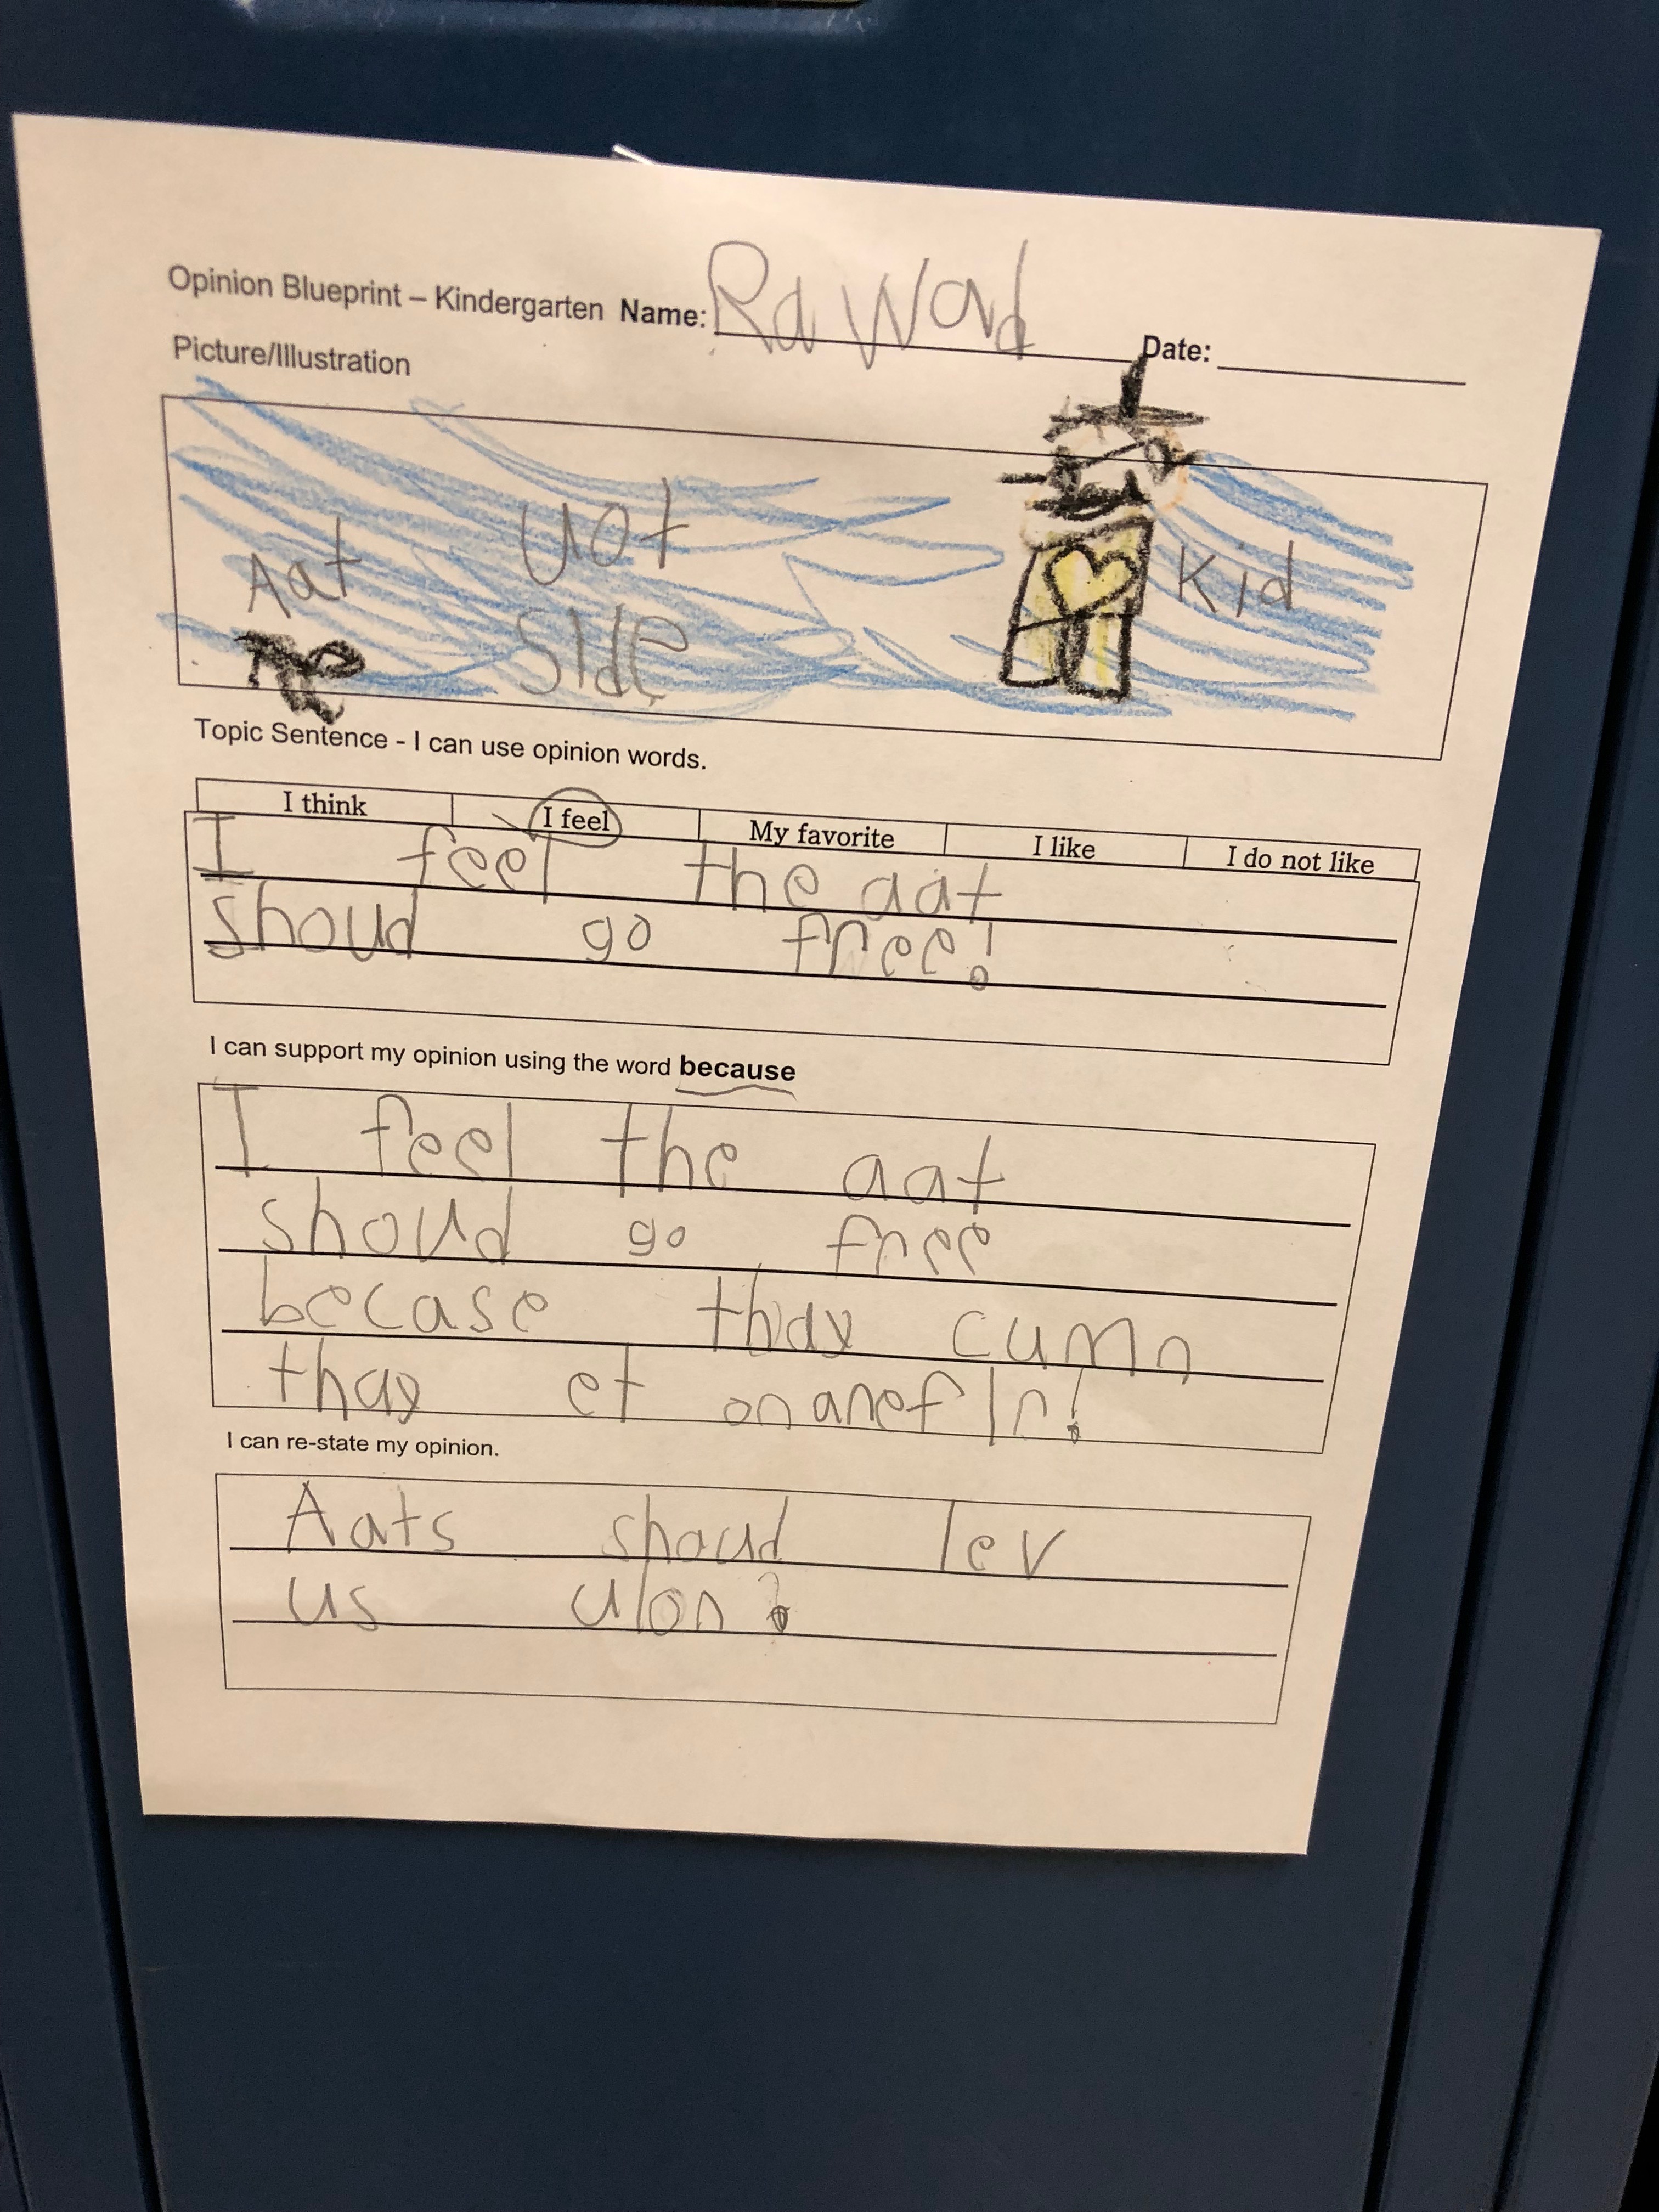 Opinion Blueprint – Kindergarten Name: Rd Word Date:
Picture/Illustration
Aat uot side Kid
Topic Sentence - I can use opinion words.
I think I feel My favorite I like I do not like
I feel the aat
shoud go free!
I can support my opinion using the word because
I feel the aat
shoud go free
becase thay cumn
thay et onanefln!
I can re-state my opinion.
Aats shoud lev
us ulon!